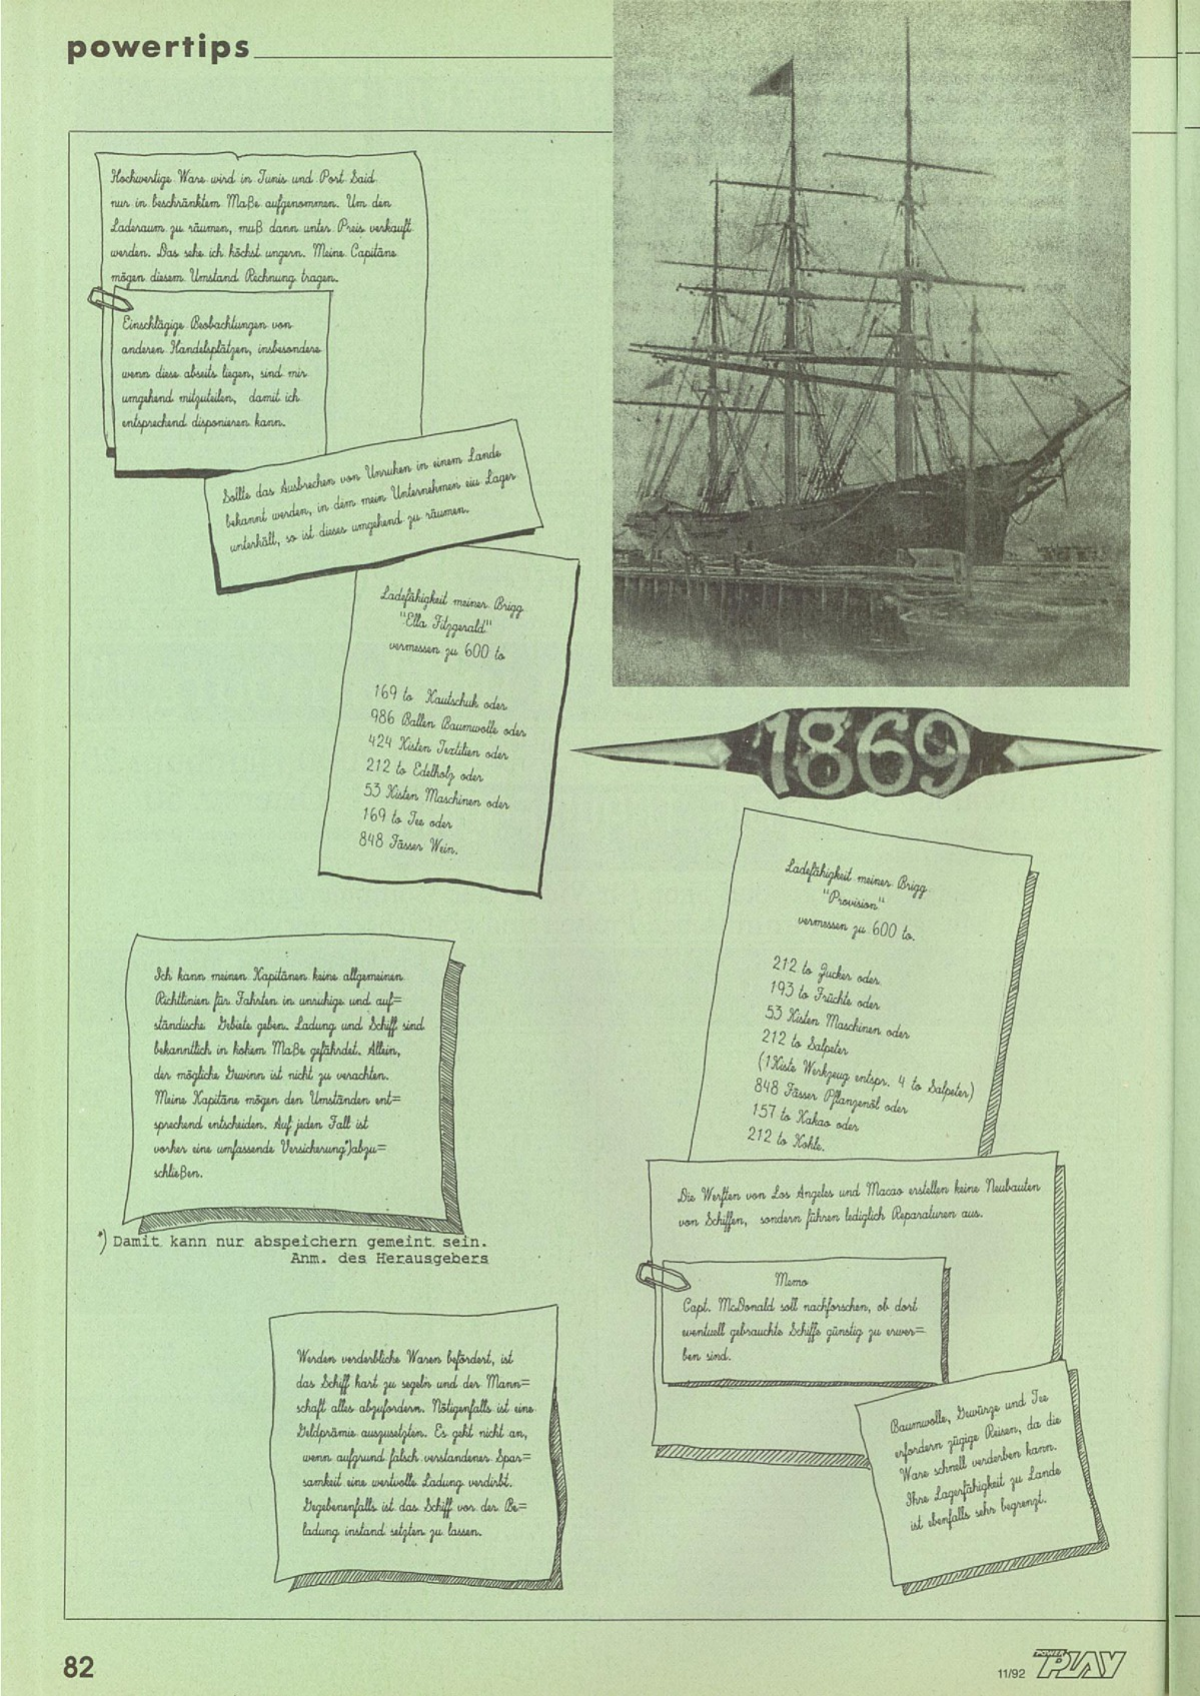 powertips
Hochwertige Ware wird in Tunis und Port Said
nur in beschränktem Maße aufgenommen. Um den
Laderaum zu räumen, muß dann unter Preis verkauft
werden. Das sehe ich höchst ungern. Meine Capitäne
mögen diesem Umstand Rechnung tragen.
Einschlägige Beobachtungen von
anderen Handelsplätzen, insbesondere
wenn diese abseits liegen, sind mir
umgehend mitzuteilen, damit ich
entsprechend disponieren kann.
Sollte das Ausbrechen von Unruhen in einem Lande
bekannt werden, in dem mein Unternehmen ein Lager
unterhält, so ist dieses umgehend zu räumen.
Ladefähigkeit meiner Brigg
"Ella Fitzgerald"
vermessen zu 600 to
169 to Kautschuk oder
986 Ballen Baumwolle oder
424 Kisten Textilien oder
212 to Edelholz oder
53 Kisten Maschinen oder
169 to Tee oder
848 Fässer Wein.
1869
Ladefähigkeit meiner Brigg
"Provision"
vermessen zu 600 to.
212 to Zucker oder
193 to Früchte oder
53 Kisten Maschinen oder
212 to Salpeter
(1 Kiste Werkzeug entspr. 4 to Salpeter)
848 Fässer Pflanzenöl oder
157 to Kakao oder
212 to Kohle.
Ich kann meinen Kapitänen keine allgemeinen
Richtlinien für Fahrten in unruhige und auf=
ständische Gebiete geben. Ladung und Schiff sind
bekanntlich in hohem Maße gefährdet. Allein,
der mögliche Gewinn ist nicht zu verachten.
Meine Kapitäne mögen den Umständen ent=
sprechend entscheiden. Auf jeden Fall ist
vorher eine umfassende Versicherung*)abzu=
schließen.
*) Damit kann nur abspeichern gemeint sein.
Anm. des Herausgebers
Die Werften von Los Angeles und Macao erstellen keine Neubauten
von Schiffen, sondern führen lediglich Reparaturen aus.
Memo
Capt. McDonald soll nachforschen, ob dort
eventuell gebrauchte Schiffe günstig zu erwer=
ben sind.
Werden verderbliche Waren befördert, ist
das Schiff hart zu segeln und der Mann=
schaft alles abzufordern. Nötigenfalls ist eine
Geldprämie auszusetzten. Es geht nicht an,
wenn aufgrund falsch verstandener Spar=
samkeit eine wertvolle Ladung verdirbt.
Gegebenenfalls ist das Schiff vor der Be=
ladung instand setzten zu lassen.
Baumwolle, Gewürze und Tee
erfordern zügige Reisen, da die
Ware schnell verderben kann.
Ihre Lagerfähigkeit zu Lande
ist ebenfalls sehr begrenzt.
82
11/92 POWER PLAY